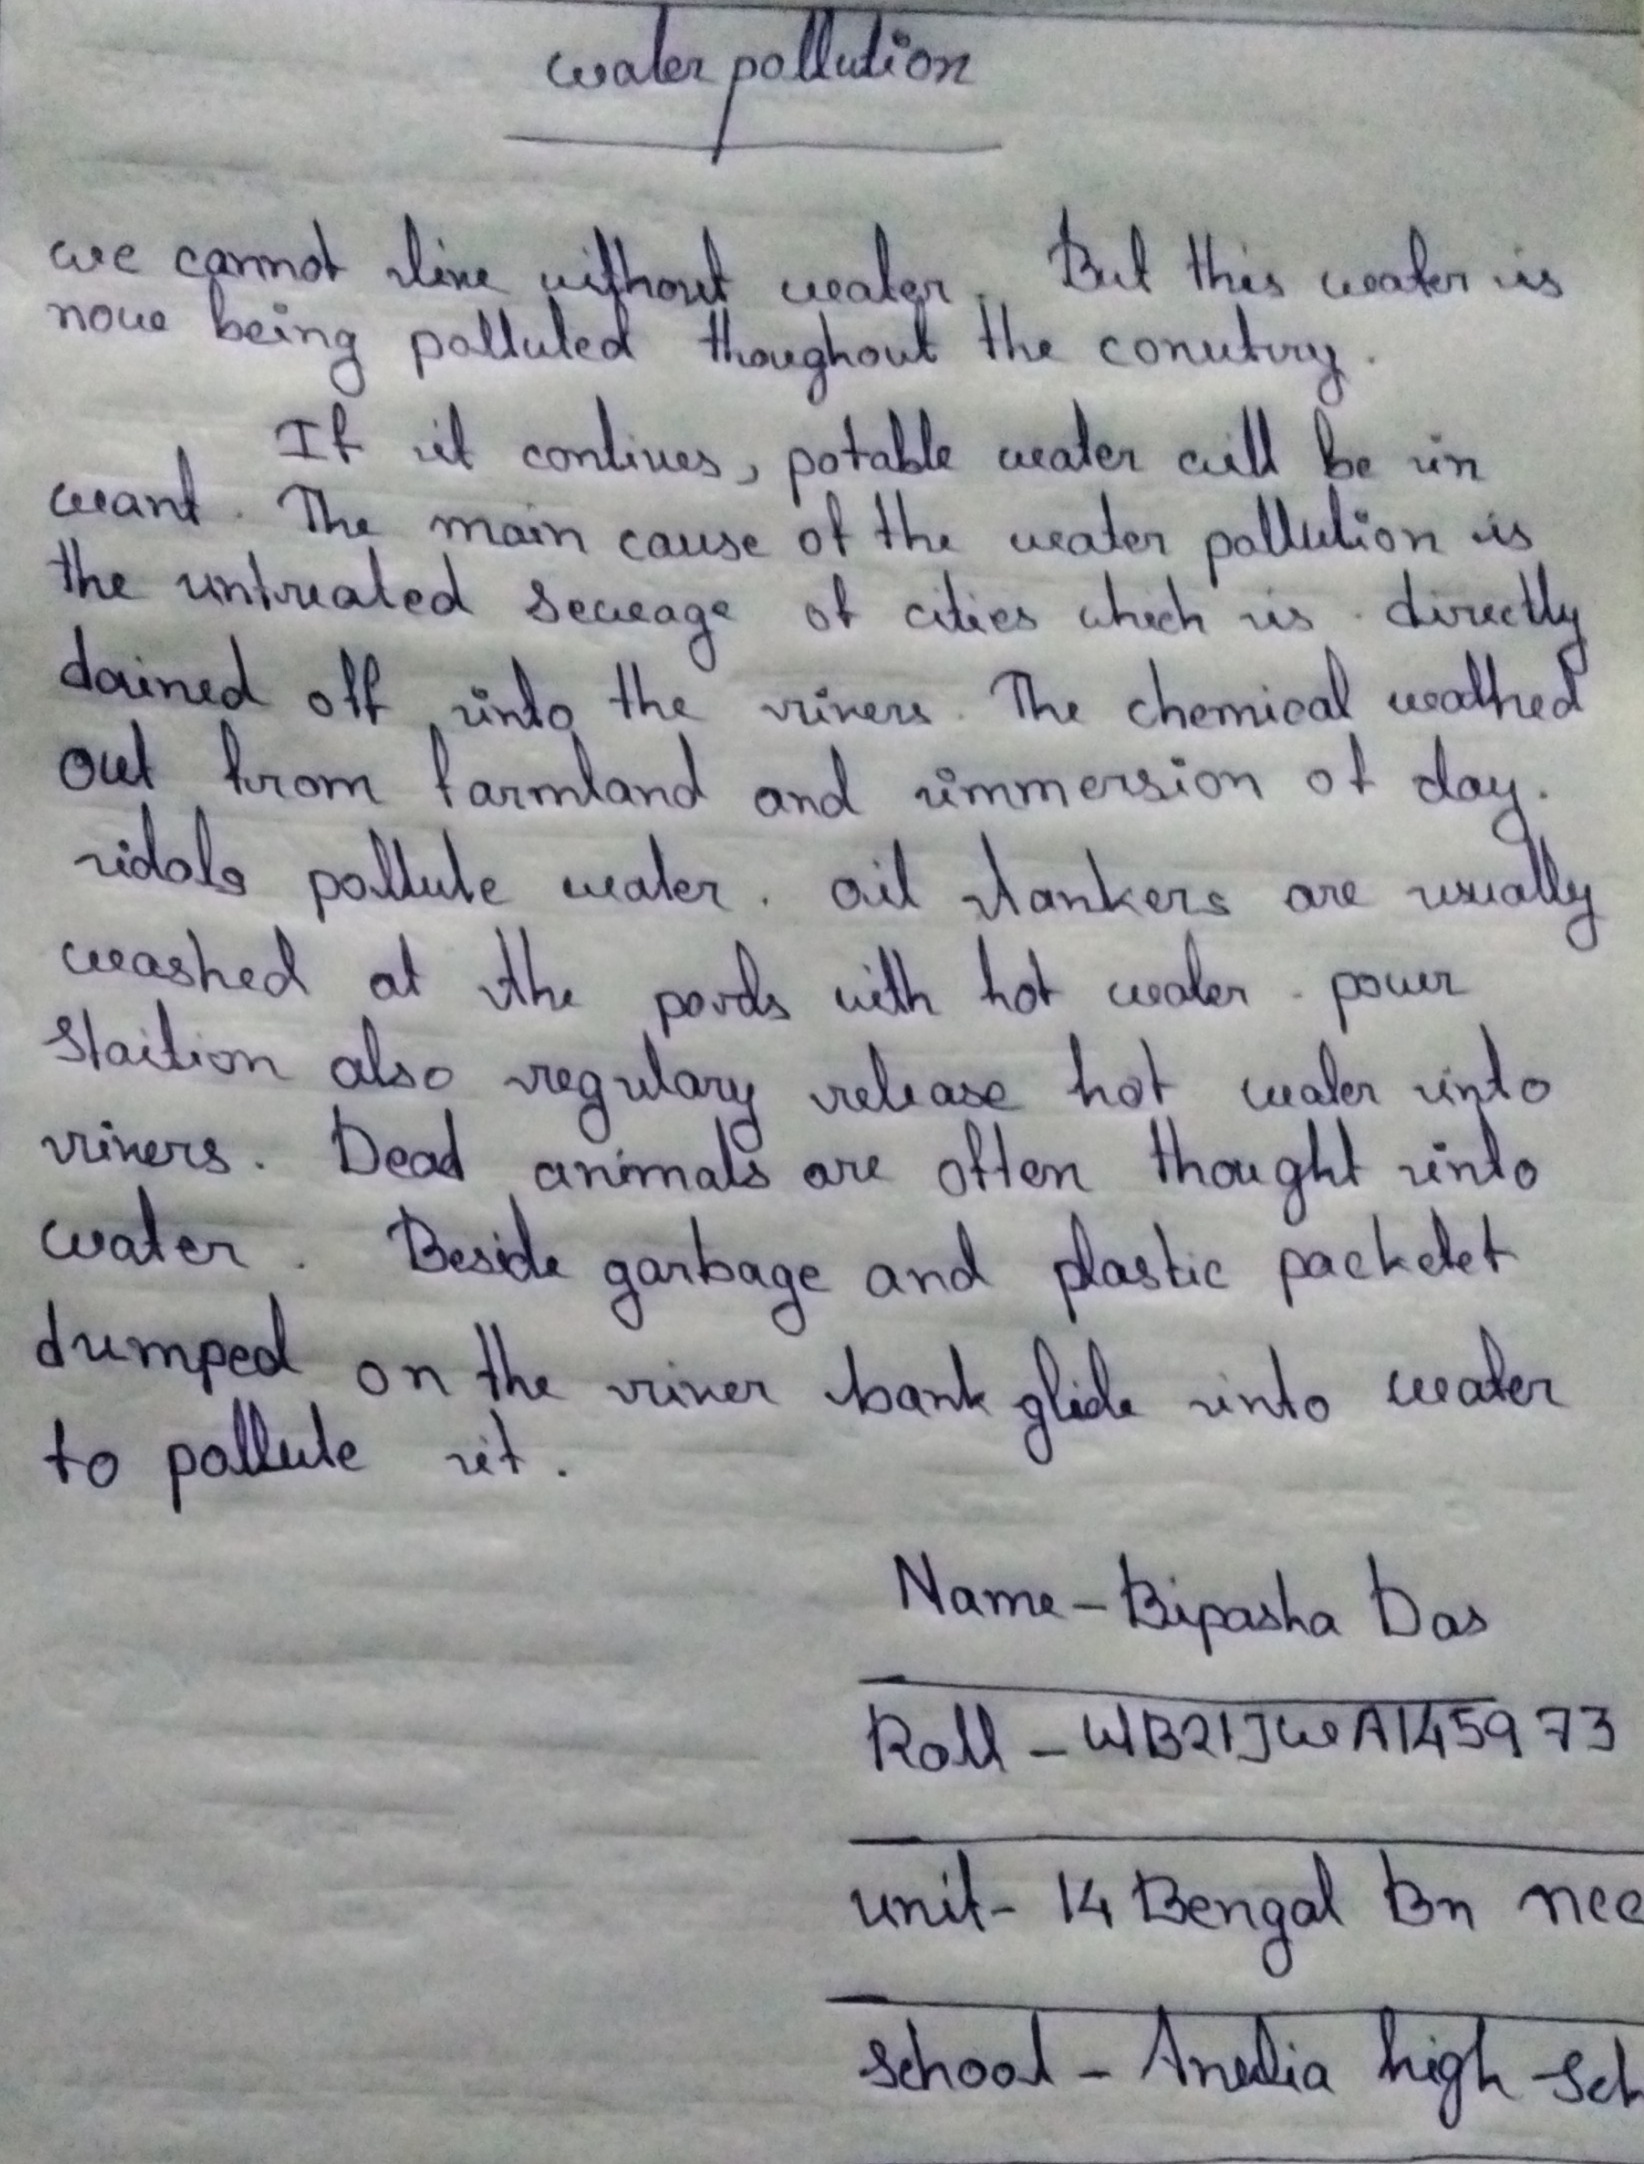 water pollution
we cannot live without water. But this water is
now being polluted thoughout the conutry.
If it contiues, potable water will be in
want. The main cause of the water pollution is
the untreated seweage of cities which is directly
dained off into the rivers. The chemical wathed
out from farmland and immersion of day.
idols pollute water. oil tankers are usually
washed at the pords with hot water. power
staition also regulary release hot water into
rivers. Dead animals are often thought into
water. Beside garbage and plastic packetet
dumped on the river bank glide into water
to pollute it.
Name - Bipasha Das
Roll - WB21JWA145973
unit - 14 Bengal Bn ncc
school - Anulia high Sch